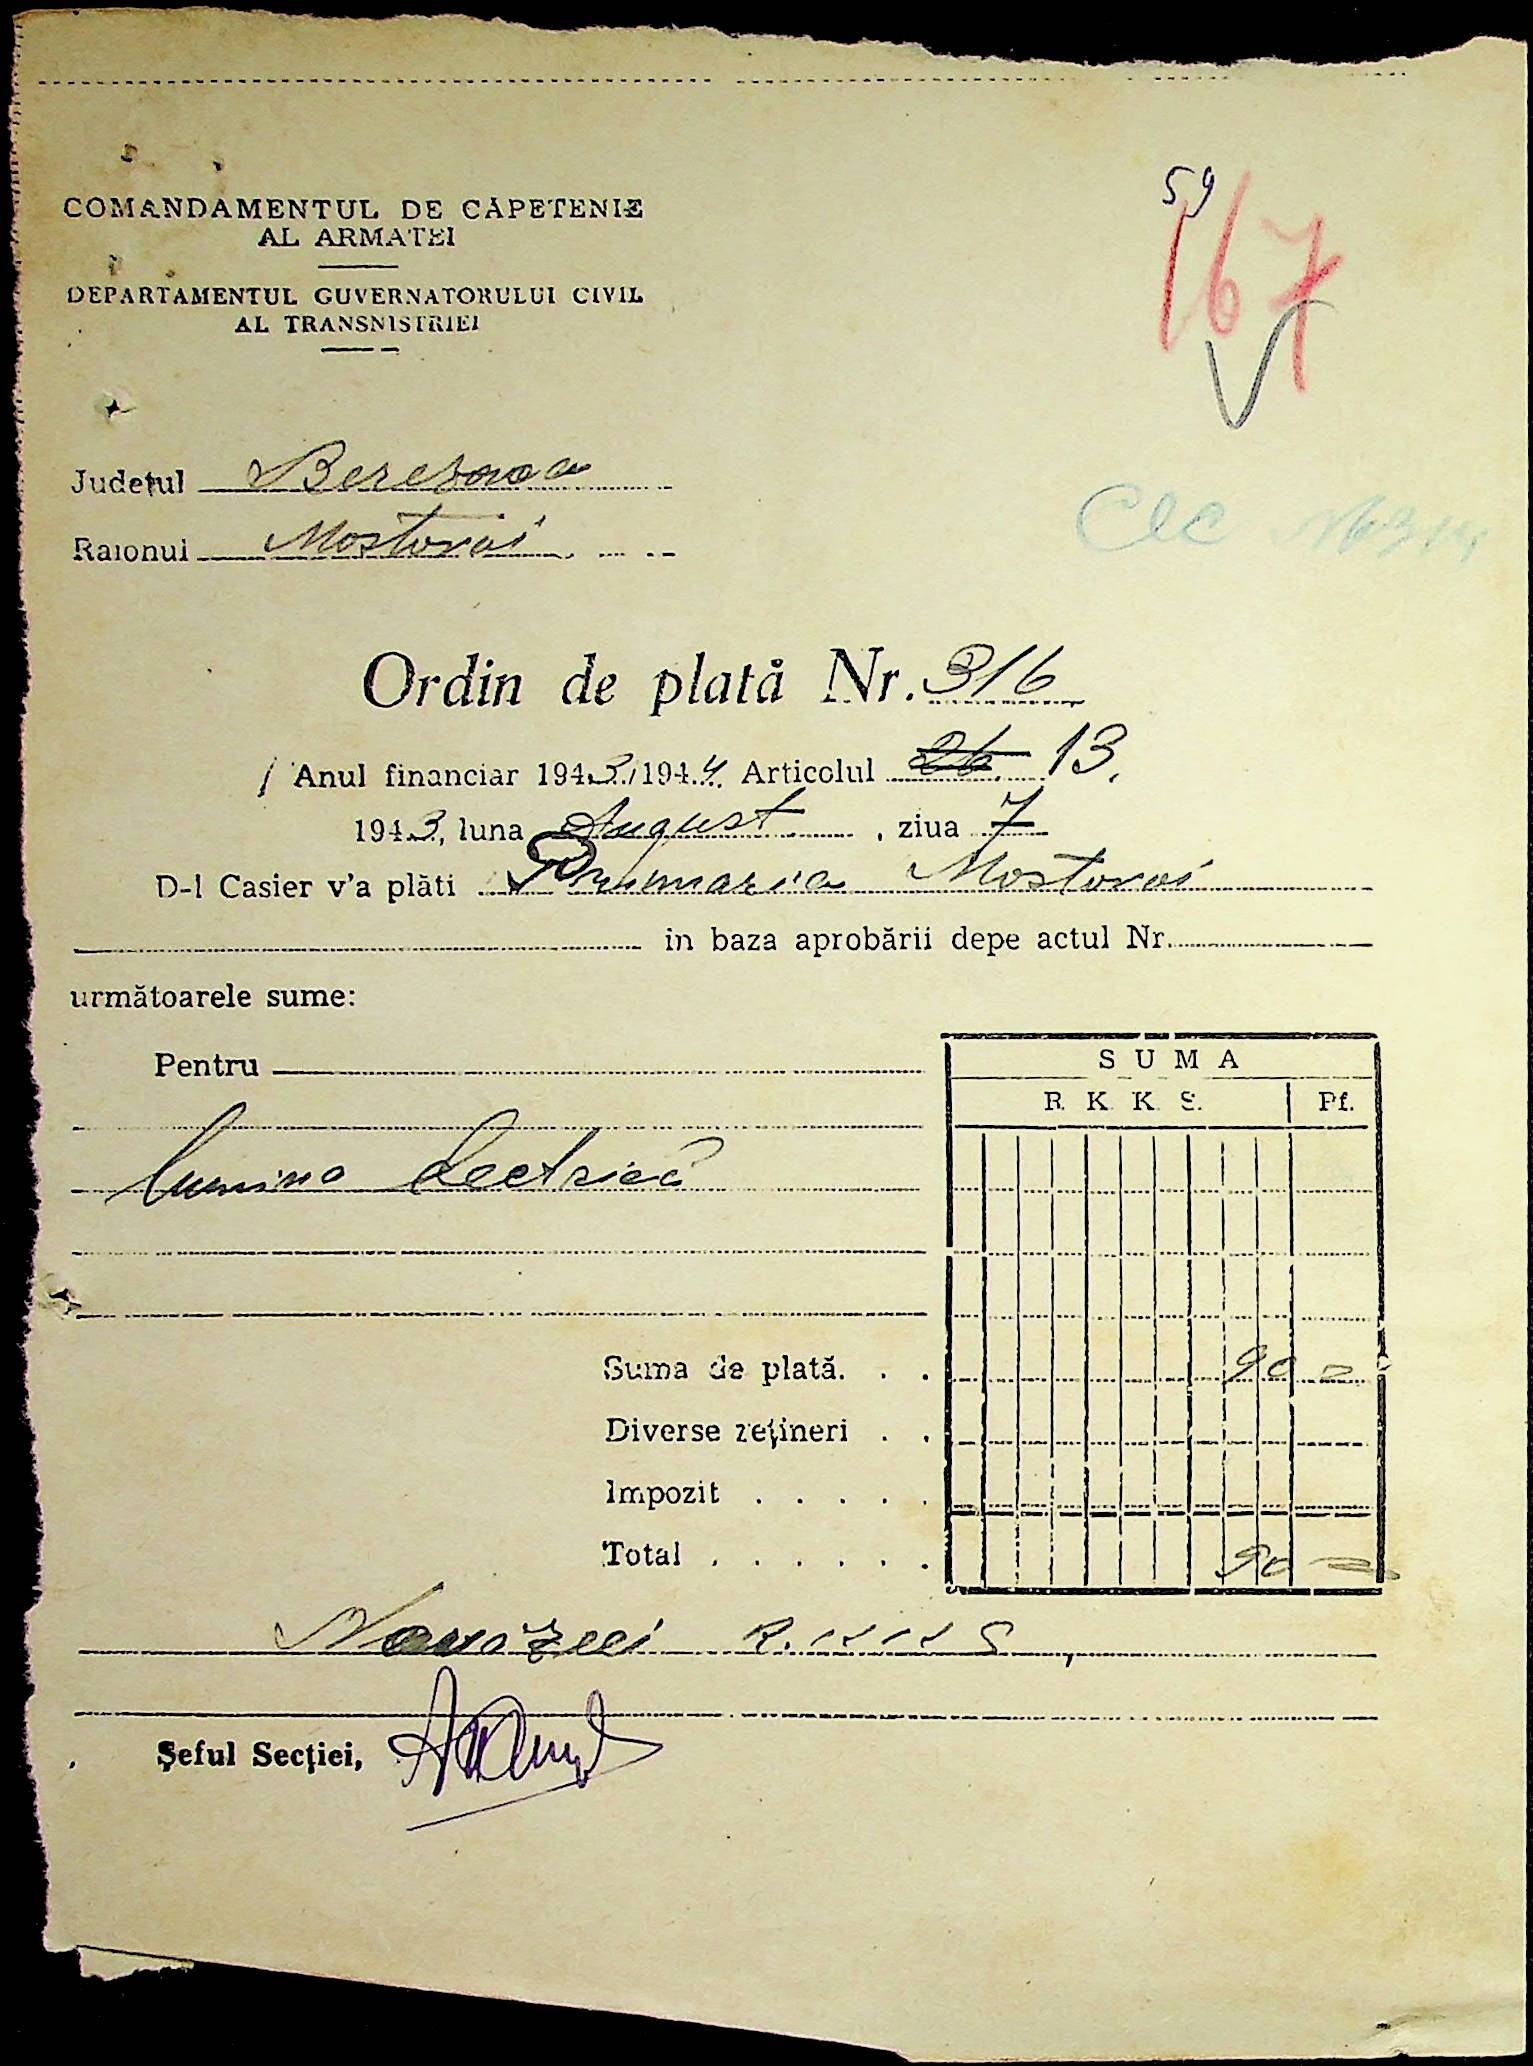 59
167
COMANDAMENTUL DE CĂPETENIE
AL ARMATEI
DEPARTAMENTUL GUVERNATORULUI CIVIL
AL TRANSNISTRIEI
Județul Berezovca
Raionul Mostovoi
Ordin de plată Nr. 316
Anul financiar 1943/1944 Articolul 26 13.
1943, luna August, ziua 7
D-l Casier v'a plăti Primaria Mostovoi
in baza aprobării depe actul Nr.
următoarele sume:
Pentru
SUMA
R. K. K. S. Pf.
lumina electrică
Suma de plată. . . 90 =
Diverse rețineri . .
Impozit . . . . .
Total . . . . . . 90 =
Nouăzeci R.K.K.S
Șeful Secției,